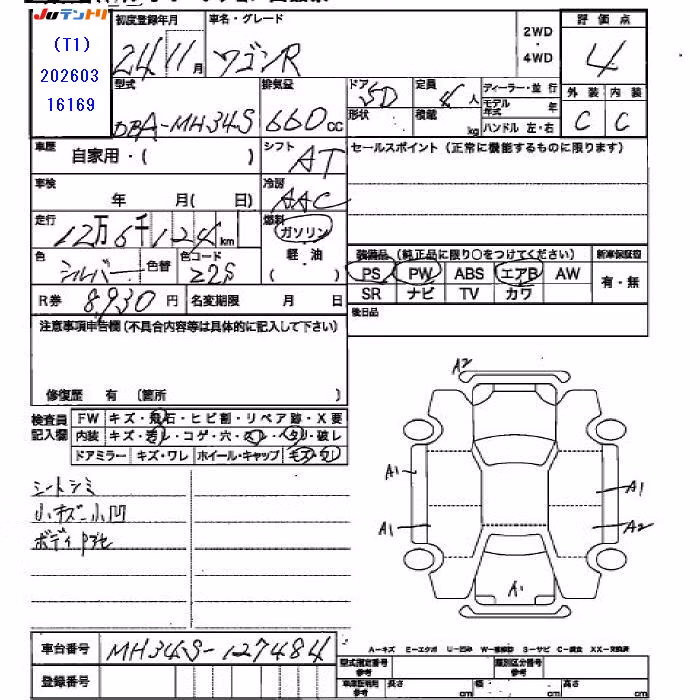 Juテントリ
(T1)
202603
16169
初度登録年月 車名・グレード 2WD・4WD 評価点
24 11月 ワゴンR 4
型式 排気量 ドア 形状 定員 積載 ディーラー・並行 モデル年式 年 ハンドル 左・右 外装 内装
DBA-MH34S 660cc 5D 4人 kg C C
車歴 自家用・( ) シフト AT セールスポイント(正常に機能するものに限ります)
車検 年 月( 日) 冷房 AAC
走行 12万6千124km 燃料 ガソリン 軽・油 ( )
色 シルバー 色替 色コード Z2S
装備品(純正品に限り○をつけてください) 新車保証書
PS PW ABS エアB AW 有・無
SR ナビ TV カワ
R券 8,930円 名変期限 月 日 後日品
注意事項申告欄(不具合内容等は具体的に記入して下さい)
修復歴 有 (箇所 )
検査員記入欄 FW キズ・飛石・ヒビ割・リペア跡・X要
内装 キズ・汚レ・コゲ・穴・スレ・ヘタリ・破レ
ドアミラー キズ・ワレ ホイール・キャップ キズ・ワレ
シートシミ
小キズ 小凹
ボディ
A2
A1
A1
A1
A2
A1
A-キズ E-エクボ U-凹み W-補修跡 S-サビ C-腐食 XX-交換済
車台番号 MH34S-127484
登録番号
型式指定番号 参考 類別区分番号 参考
車庫証明用 参考 長さ cm 幅 cm 高さ cm